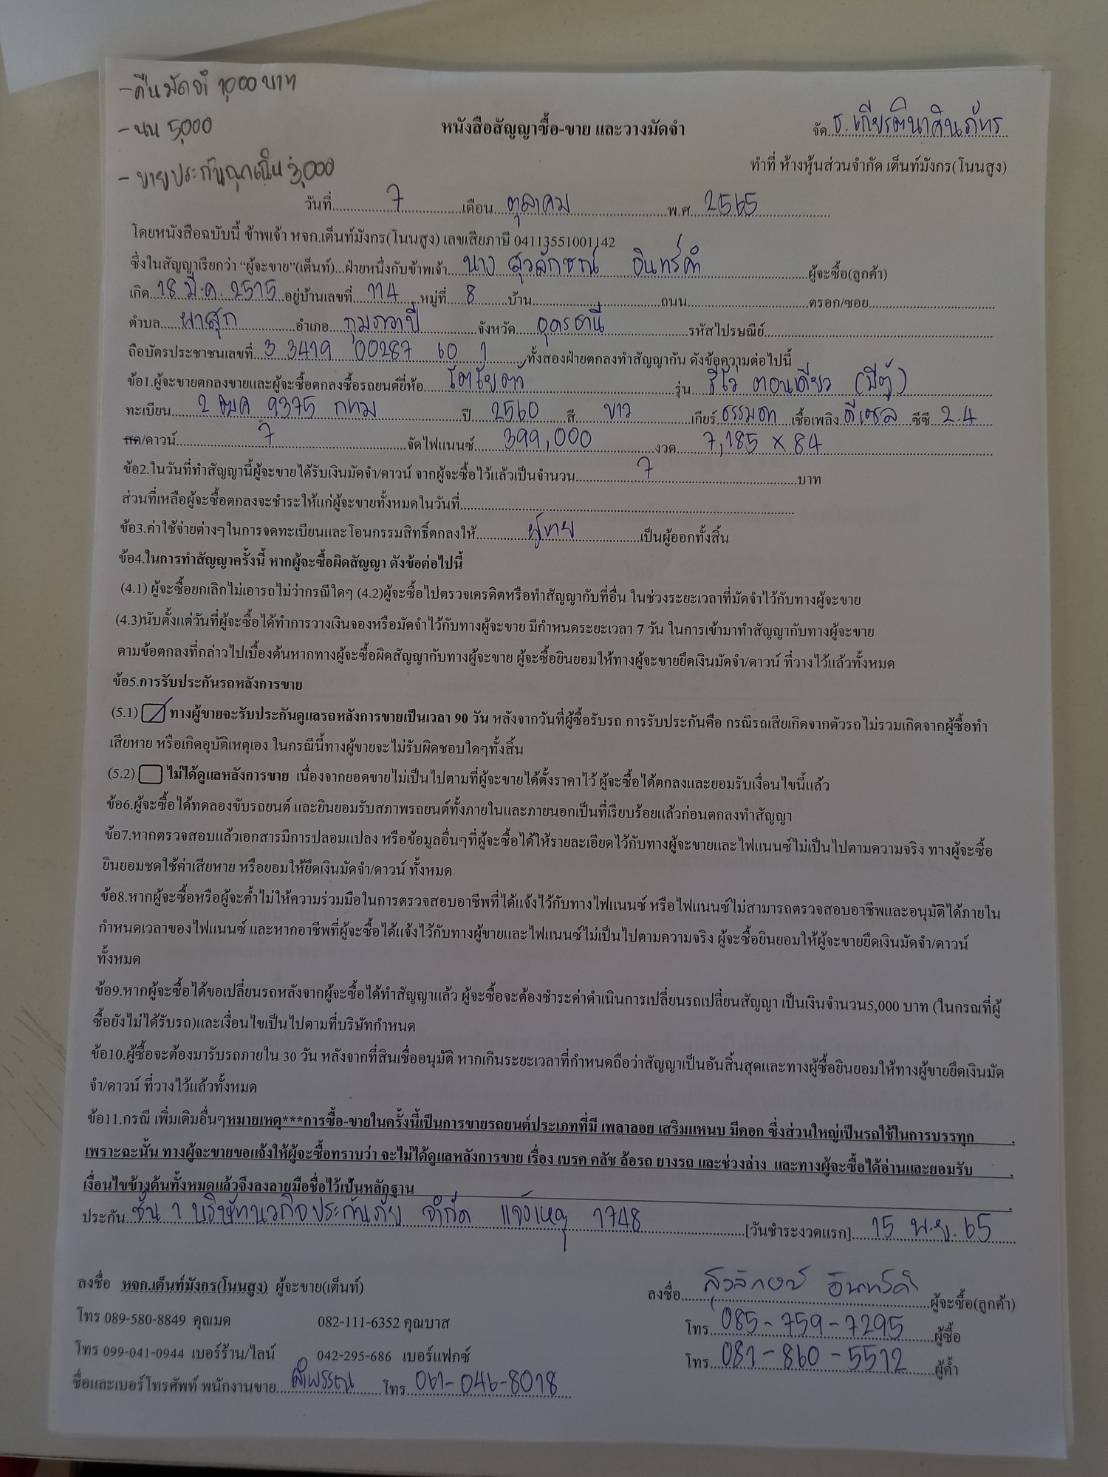 -คืนมัดจำ 1,000 บาท
-นน 5,000
-ขายประกันฉุกเฉิน 3,000
หนังสือสัญญาซื้อ-ขาย และวางมัดจำ
จัด ธ.เกียรตินาคินภัทร
ทำที่ ห้างหุ้นส่วนจำกัด เต็นท์มังกร(โนนสูง)
วันที่ 7 เดือน ตุลาคม พ.ศ. 2565
โดยหนังสือฉบับนี้ ข้าพเจ้า หจก.เต็นท์มังกร(โนนสูง) เลขเสียภาษี 04113551001142
ซึ่งในสัญญาเรียกว่า “ผู้จะขาย”(เต็นท์)...ฝ่ายหนึ่งกับข้าพเจ้า นาง สุวลักษณ์ อินทร์คำ ผู้จะซื้อ(ลูกค้า)
เกิด 18 มี.ค. 2515 อยู่บ้านเลขที่ 114 หมู่ที่ 8 บ้าน ถนน ตรอก/ซอย
ตำบล ผาสุก อำเภอ กุมภวาปี จังหวัด อุดรธานี รหัสไปรษณีย์
ถือบัตรประชาชนเลขที่ 3 3419 00287 60 1 ทั้งสองฝ่ายตกลงทำสัญญากัน ดังข้อความต่อไปนี้
ข้อ1.ผู้จะขายตกลงขายและผู้จะซื้อตกลงซื้อรถยนต์ยี่ห้อ โตโยต้า รุ่น รีโว่ ตอนเดียว (มีตู้)
ทะเบียน 2 ฒค 9375 กทม ปี 2560 สี ขาว เกียร์ ธรรมดา เชื้อเพลิง ดีเซล ซีซี 2.4
สด/ดาวน์ 7 จัดไฟแนนซ์ 399,000 งวด 7,185 x 84
ข้อ2.ในวันที่ทำสัญญานี้ผู้จะขายได้รับเงินมัดจำ/ดาวน์ จากผู้จะซื้อไว้แล้วเป็นจำนวน 7 บาท
ส่วนที่เหลือผู้จะซื้อตกลงจะชำระให้แก่ผู้จะขายทั้งหมดในวันที่
ข้อ3.ค่าใช้จ่ายต่างๆในการจดทะเบียนและโอนกรรมสิทธิ์ตกลงให้ ผู้ขาย เป็นผู้ออกทั้งสิ้น
ข้อ4.ในการทำสัญญาครั้งนี้ หากผู้จะซื้อผิดสัญญา ดังข้อต่อไปนี้
(4.1) ผู้จะซื้อยกเลิกไม่เอารถไม่ว่ากรณีใดๆ (4.2)ผู้จะซื้อไปตรวจเครดิตหรือทำสัญญากับที่อื่น ในช่วงระยะเวลาที่มัดจำไว้กับทางผู้จะขาย
(4.3)นับตั้งแต่วันที่ผู้จะซื้อได้ทำการวางเงินจองหรือมัดจำไว้กับทางผู้จะขาย มีกำหนดระยะเวลา 7 วัน ในการเข้ามาทำสัญญากับทางผู้จะขาย
ตามข้อตกลงที่กล่าวไปเบื้องต้นหากทางผู้จะซื้อผิดสัญญากับทางผู้จะขาย ผู้จะซื้อยินยอมให้ทางผู้จะขายยึดเงินมัดจำ/ดาวน์ ที่วางไว้แล้วทั้งหมด
ข้อ5.การรับประกันรถหลังการขาย
(5.1) ทางผู้ขายจะรับประกันดูแลรถหลังการขายเป็นเวลา 90 วัน หลังจากวันที่ผู้ซื้อรับรถ การรับประกันคือ กรณีรถเสียเกิดจากตัวรถ ไม่รวมเกิดจากผู้ซื้อทำ
เสียหาย หรือเกิดอุบัติเหตุเอง ในกรณีนี้ทางผู้ขายจะไม่รับผิดชอบใดๆทั้งสิ้น
(5.2) ไม่ได้ดูแลหลังการขาย เนื่องจากยอดขายไม่เป็นไปตามที่ผู้จะขายได้ตั้งราคาไว้ ผู้จะซื้อได้ตกลงและยอมรับเงื่อนไขนี้แล้ว
ข้อ6.ผู้จะซื้อได้ทดลองขับรถยนต์ และยินยอมรับสภาพรถยนต์ทั้งภายในและภายนอกเป็นที่เรียบร้อยแล้วก่อนตกลงทำสัญญา
ข้อ7.หากตรวจสอบแล้วเอกสารมีการปลอมแปลง หรือข้อมูลอื่นๆที่ผู้จะซื้อได้ให้รายละเอียดไว้กับทางผู้จะขายและไฟแนนซ์ไม่เป็นไปตามความจริง ทางผู้จะซื้อ
ยินยอมชดใช้ค่าเสียหาย หรือยอมให้ยึดเงินมัดจำ/ดาวน์ ทั้งหมด
ข้อ8.หากผู้จะซื้อหรือผู้จะค้ำไม่ให้ความร่วมมือในการตรวจสอบอาชีพที่ได้แจ้งไว้กับทางไฟแนนซ์ หรือไฟแนนซ์ไม่สามารถตรวจสอบอาชีพและอนุมัติได้ภายใน
กำหนดเวลาของไฟแนนซ์ และหากอาชีพที่ผู้จะซื้อได้แจ้งไว้กับทางผู้ขายและไฟแนนซ์ไม่เป็นไปตามความจริง ผู้จะซื้อยินยอมให้ผู้จะขายยึดเงินมัดจำ/ดาวน์
ทั้งหมด
ข้อ9.หากผู้จะซื้อได้ขอเปลี่ยนรถหลังจากผู้จะซื้อได้ทำสัญญาแล้ว ผู้จะซื้อจะต้องชำระค่าดำเนินการเปลี่ยนรถเปลี่ยนสัญญา เป็นเงินจำนวน5,000 บาท (ในกรณที่ผู้
ซื้อยังไม่ได้รับรถ)และเงื่อนไขเป็นไปตามที่บริษัทกำหนด
ข้อ10.ผู้ซื้อจะต้องมารับรถภายใน 30 วัน หลังจากที่สินเชื่ออนุมัติ หากเกินระยะเวลาที่กำหนดถือว่าสัญญาเป็นอันสิ้นสุดและทางผู้ซื้อยินยอมให้ทางผู้ขายยึดเงินมัด
จำ/ดาวน์ ที่วางไว้แล้วทั้งหมด
ข้อ11.กรณี เพิ่มเติมอื่นๆหมายเหตุ***การซื้อ-ขายในครั้งนี้เป็นการขายรถยนต์ประเภทที่มี เพลาลอย เสริมแหนบ มีคอก ซึ่งส่วนใหญ่เป็นรถใช้ในการบรรทุก
เพราะฉะนั้น ทางผู้จะขายขอแจ้งให้ผู้จะซื้อทราบว่า จะไม่ได้ดูแลหลังการขาย เรื่อง เบรค คลัช ล้อรถ ยางรถ และช่วงล่าง และทางผู้จะซื้อได้อ่านและยอมรับ
เงื่อนไขข้างต้นทั้งหมดแล้วจึงลงลายมือชื่อไว้เป็นหลักฐาน
ประกัน ชั้น 1 บริษัทนวกิจประกันภัย จำกัด แจ้งเหตุ 1748 [วันชำระงวดแรก] 15 พ.ย. 65
ลงชื่อ หจก.เต็นท์มังกร(โนนสูง) ผู้จะขาย(เต็นท์)
ลงชื่อ สุวลักษณ์ อินทร์คำ ผู้จะซื้อ(ลูกค้า)
โทร 089-580-8849 คุณมด 082-111-6352 คุณบาส
โทร 085-759-7295 ผู้ซื้อ
โทร 099-041-0944 เบอร์ร้าน/ไลน์ 042-295-686 เบอร์แฟกซ์
โทร 081-860-5512 ผู้ค้ำ
ชื่อและเบอร์โทรศัพท์ พนักงานขาย ลำพรรณ โทร 061-046-8018